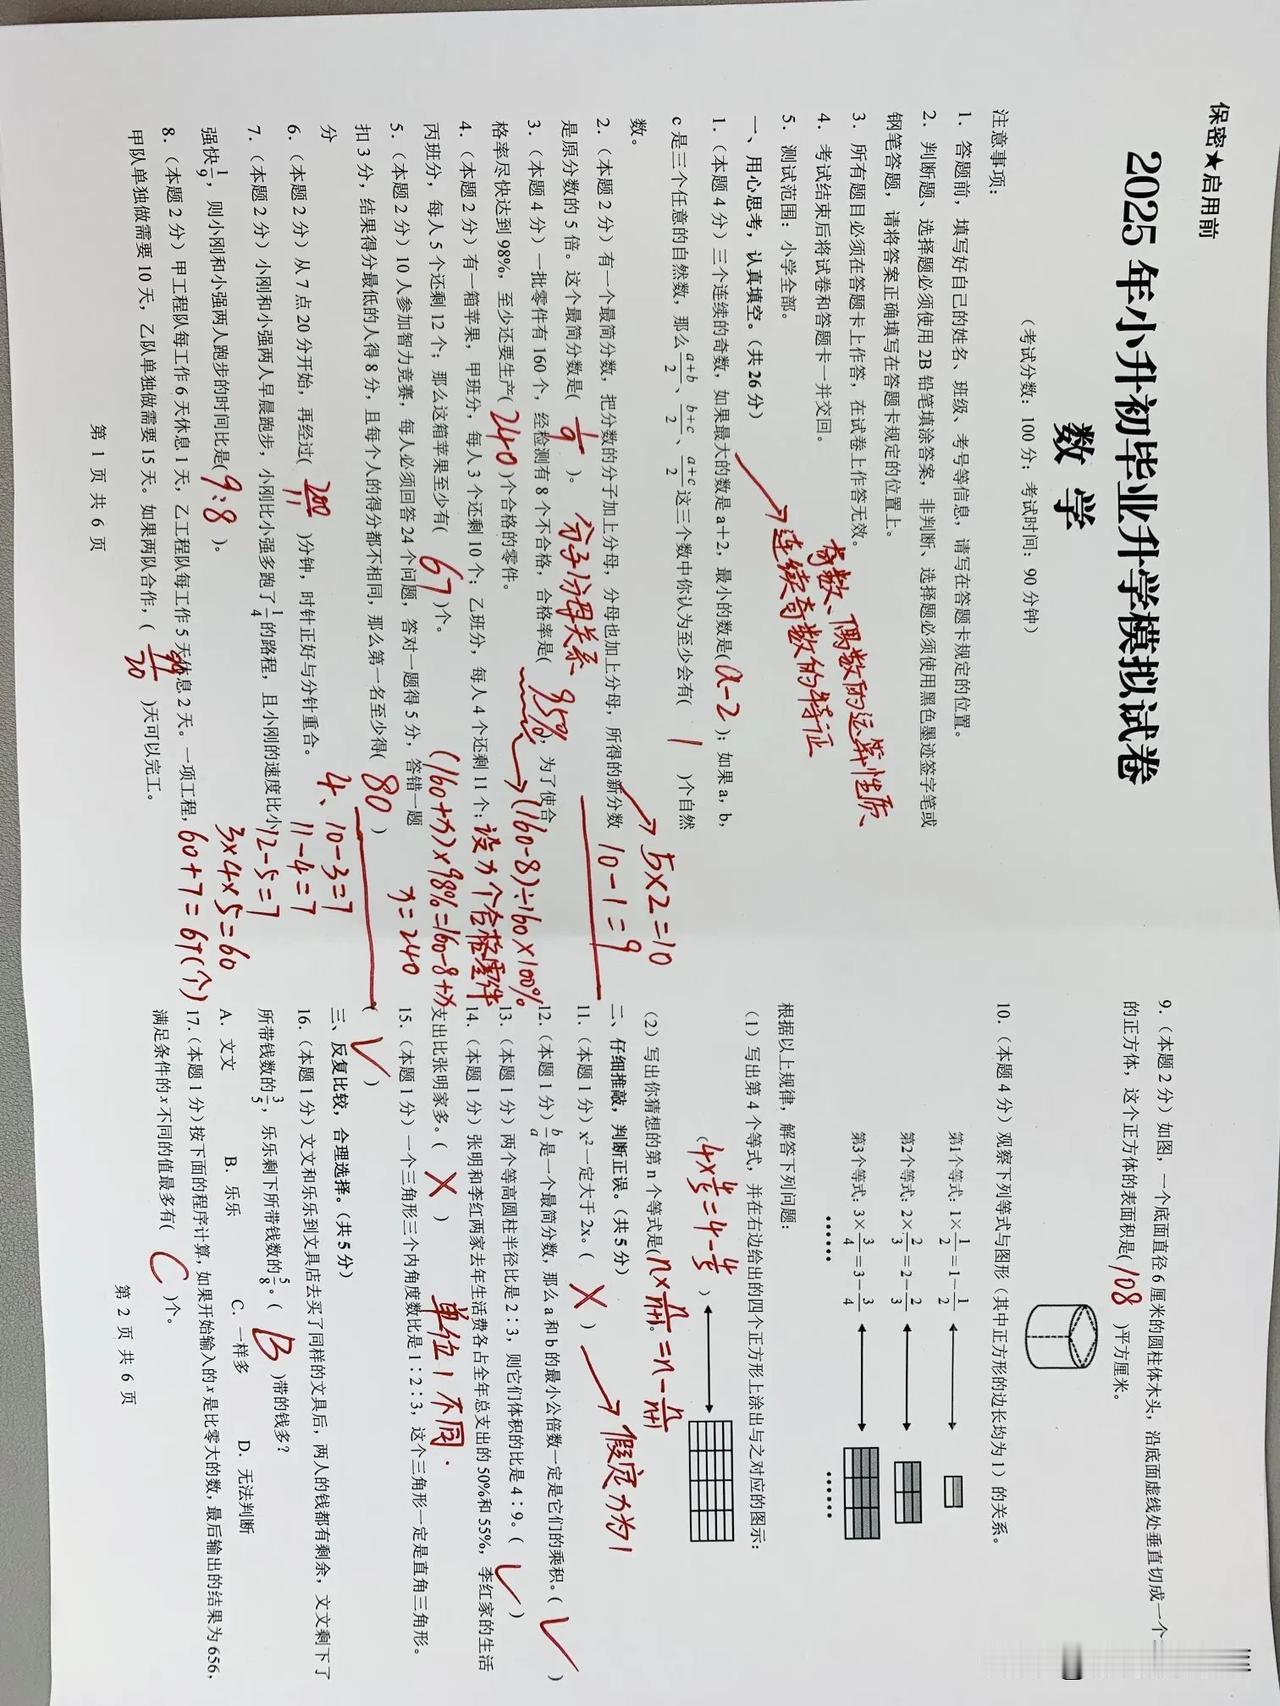 保密★启用前
2025年小升初毕业升学模拟试卷
数 学
（考试分数：100分；考试时间：90分钟）
注意事项：
1．答题前，填写好自己的姓名、班级、考号等信息，请写在答题卡规定的位置。
2．判断题、选择题必须使用2B铅笔填涂答案，非判断、选择题必须使用黑色墨迹签字笔或
钢笔答题，请将答案正确填写在答题卡规定的位置上。
3．所有题目必须在答题卡上作答，在试卷上作答无效。
4．考试结束后将试卷和答题卡一并交回。
5．测试范围：小学全部。
奇数、偶数的运算性质
连续奇数的特证
一、用心思考，认真填空。（共26分）
1．（本题4分）三个连续的奇数，如果最大的数是a+2，最小的数是( a-2 )；如果a，b，
c是三个任意的自然数，那么(a+b)/2、(b+c)/2、(a+c)/2这三个数中你认为至少会有( 1 )个自然
数。
2．（本题2分）有一个最简分数，把分数的分子加上分母，分母也加上分母，所得的新分数
是原分数的5倍。这个最简分数是( 1/9 )。
分子1分母关系
5×2=10
10-1=9
3．（本题4分）一批零件有160个，经检测有8个不合格，合格率是( 95% )，为了使合
格率尽快达到98%，至少还要生产( 240 )个合格的零件。
(160-8)÷160×100%
设x个合格零件
(160+x)×98%=160-8+x
x=240
4．（本题2分）有一箱苹果，甲班分，每人3个还剩10个；乙班分，每人4个还剩11个；
丙班分，每人5个还剩12个；那么这箱苹果至少有( 67 )个。
5．（本题2分）10人参加智力竞赛，每人必须回答24个问题，答对一题得5分，答错一题
扣3分，结果得分最低的人得8分，且每个人的得分都不相同，那么第一名至少得( 80 )
分
4、10-3=7
11-4=7
12-5=7
3×4×5=60
60+7=67(个)
6．（本题2分）从7点20分开始，再经过( 200/11 )分钟，时针正好与分针重合。
7．（本题2分）小刚和小强两人早晨跑步，小刚比小强多跑了1/4的路程，且小刚的速度比小
强快1/9，则小刚和小强两人跑步的时间比是( 9:8 )。
8．（本题2分）甲工程队每工作6天休息1天，乙工程队每工作5天休息2天。一项工程，
甲队单独做需要10天，乙队单独做需要15天。如果两队合作，( )天可以完工。
第 1 页 共 6 页
9．（本题2分）如图，一个底面直径6厘米的圆柱体木头，沿底面虚线处垂直切成一个
的正方体，这个正方体的表面积是( 108 )平方厘米。
10．（本题4分）观察下列等式与图形（其中正方形的边长均为1）的关系。
第1个等式：1×1/2=1-1/2
第2个等式：2×2/3=2-2/3
第3个等式：3×3/4=3-3/4
……
……
根据以上规律，解答下列问题：
（1）写出第4个等式，并在右边给出的四个正方形上涂出与之对应的图示：
( 4×4/5=4-4/5 )
（2）写出你猜想的第n个等式是( n×n/(n+1)=n-n/(n+1) )。
二、仔细推敲，判断正误。（共5分）
11．（本题1分）x²一定大于2x。( × )
假定x为1
12．（本题1分）b/a是一个最简分数，那么a和b的最小公倍数一定是它们的乘积。( √ )
13．（本题1分）两个等高圆柱半径比是2∶3，则它们体积的比是4∶9。( √ )
14．（本题1分）张明和李红两家去年生活费各占全年总支出的50%和55%，李红家的生活
支出比张明家多。( × )
单位1不同.
15．（本题1分）一个三角形三个内角度数比是1∶2∶3，这个三角形一定是直角三角形。
( √ )
三、反复比较，合理选择。（共5分）
16．（本题1分）文文和乐乐到文具店去买了同样的文具后，两人的钱都有剩余，文文剩下了
所带钱数的3/5，乐乐剩下所带钱数的5/8。( B )带的钱多？
A．文文 B．乐乐 C．一样多 D．无法判断
17．（本题1分）按下面的程序计算，如果开始输入的x是比零大的数，最后输出的结果为656，
满足条件的x不同的值最多有( C )个。
第 2 页 共 6 页